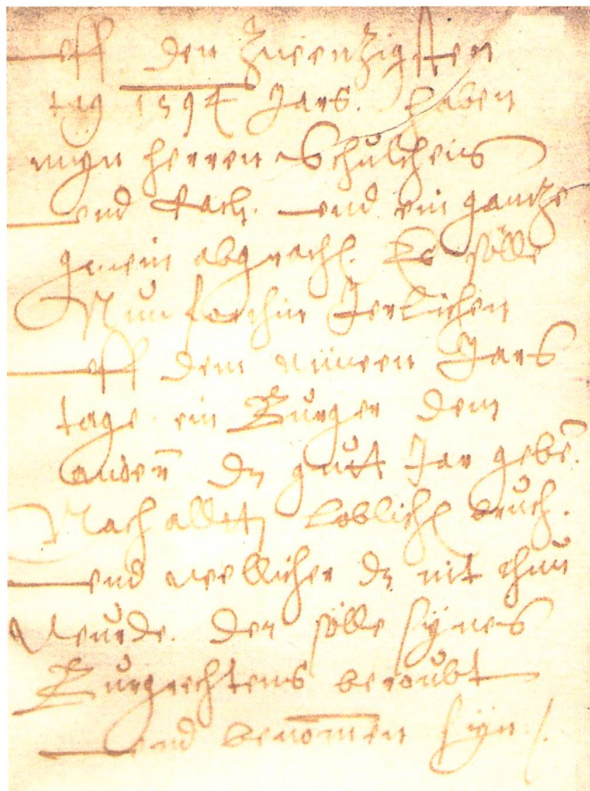 Uff den Zwenzigsten
tag 1594 Jars. Haben
myn herren Schultheis
und Rath. und ein gantze
gmein abgrathtt. Es sölle
Nun forthin Jerlichen
uff dem nüwen Jars
tage ein Burger dem
andern dz gutt Jar gebē.
Nach altem Loblichē bruch.
und wellicher dz nit thun
wurde. Der sölle synes
Burgrechtens beroubt
und benommen syn.